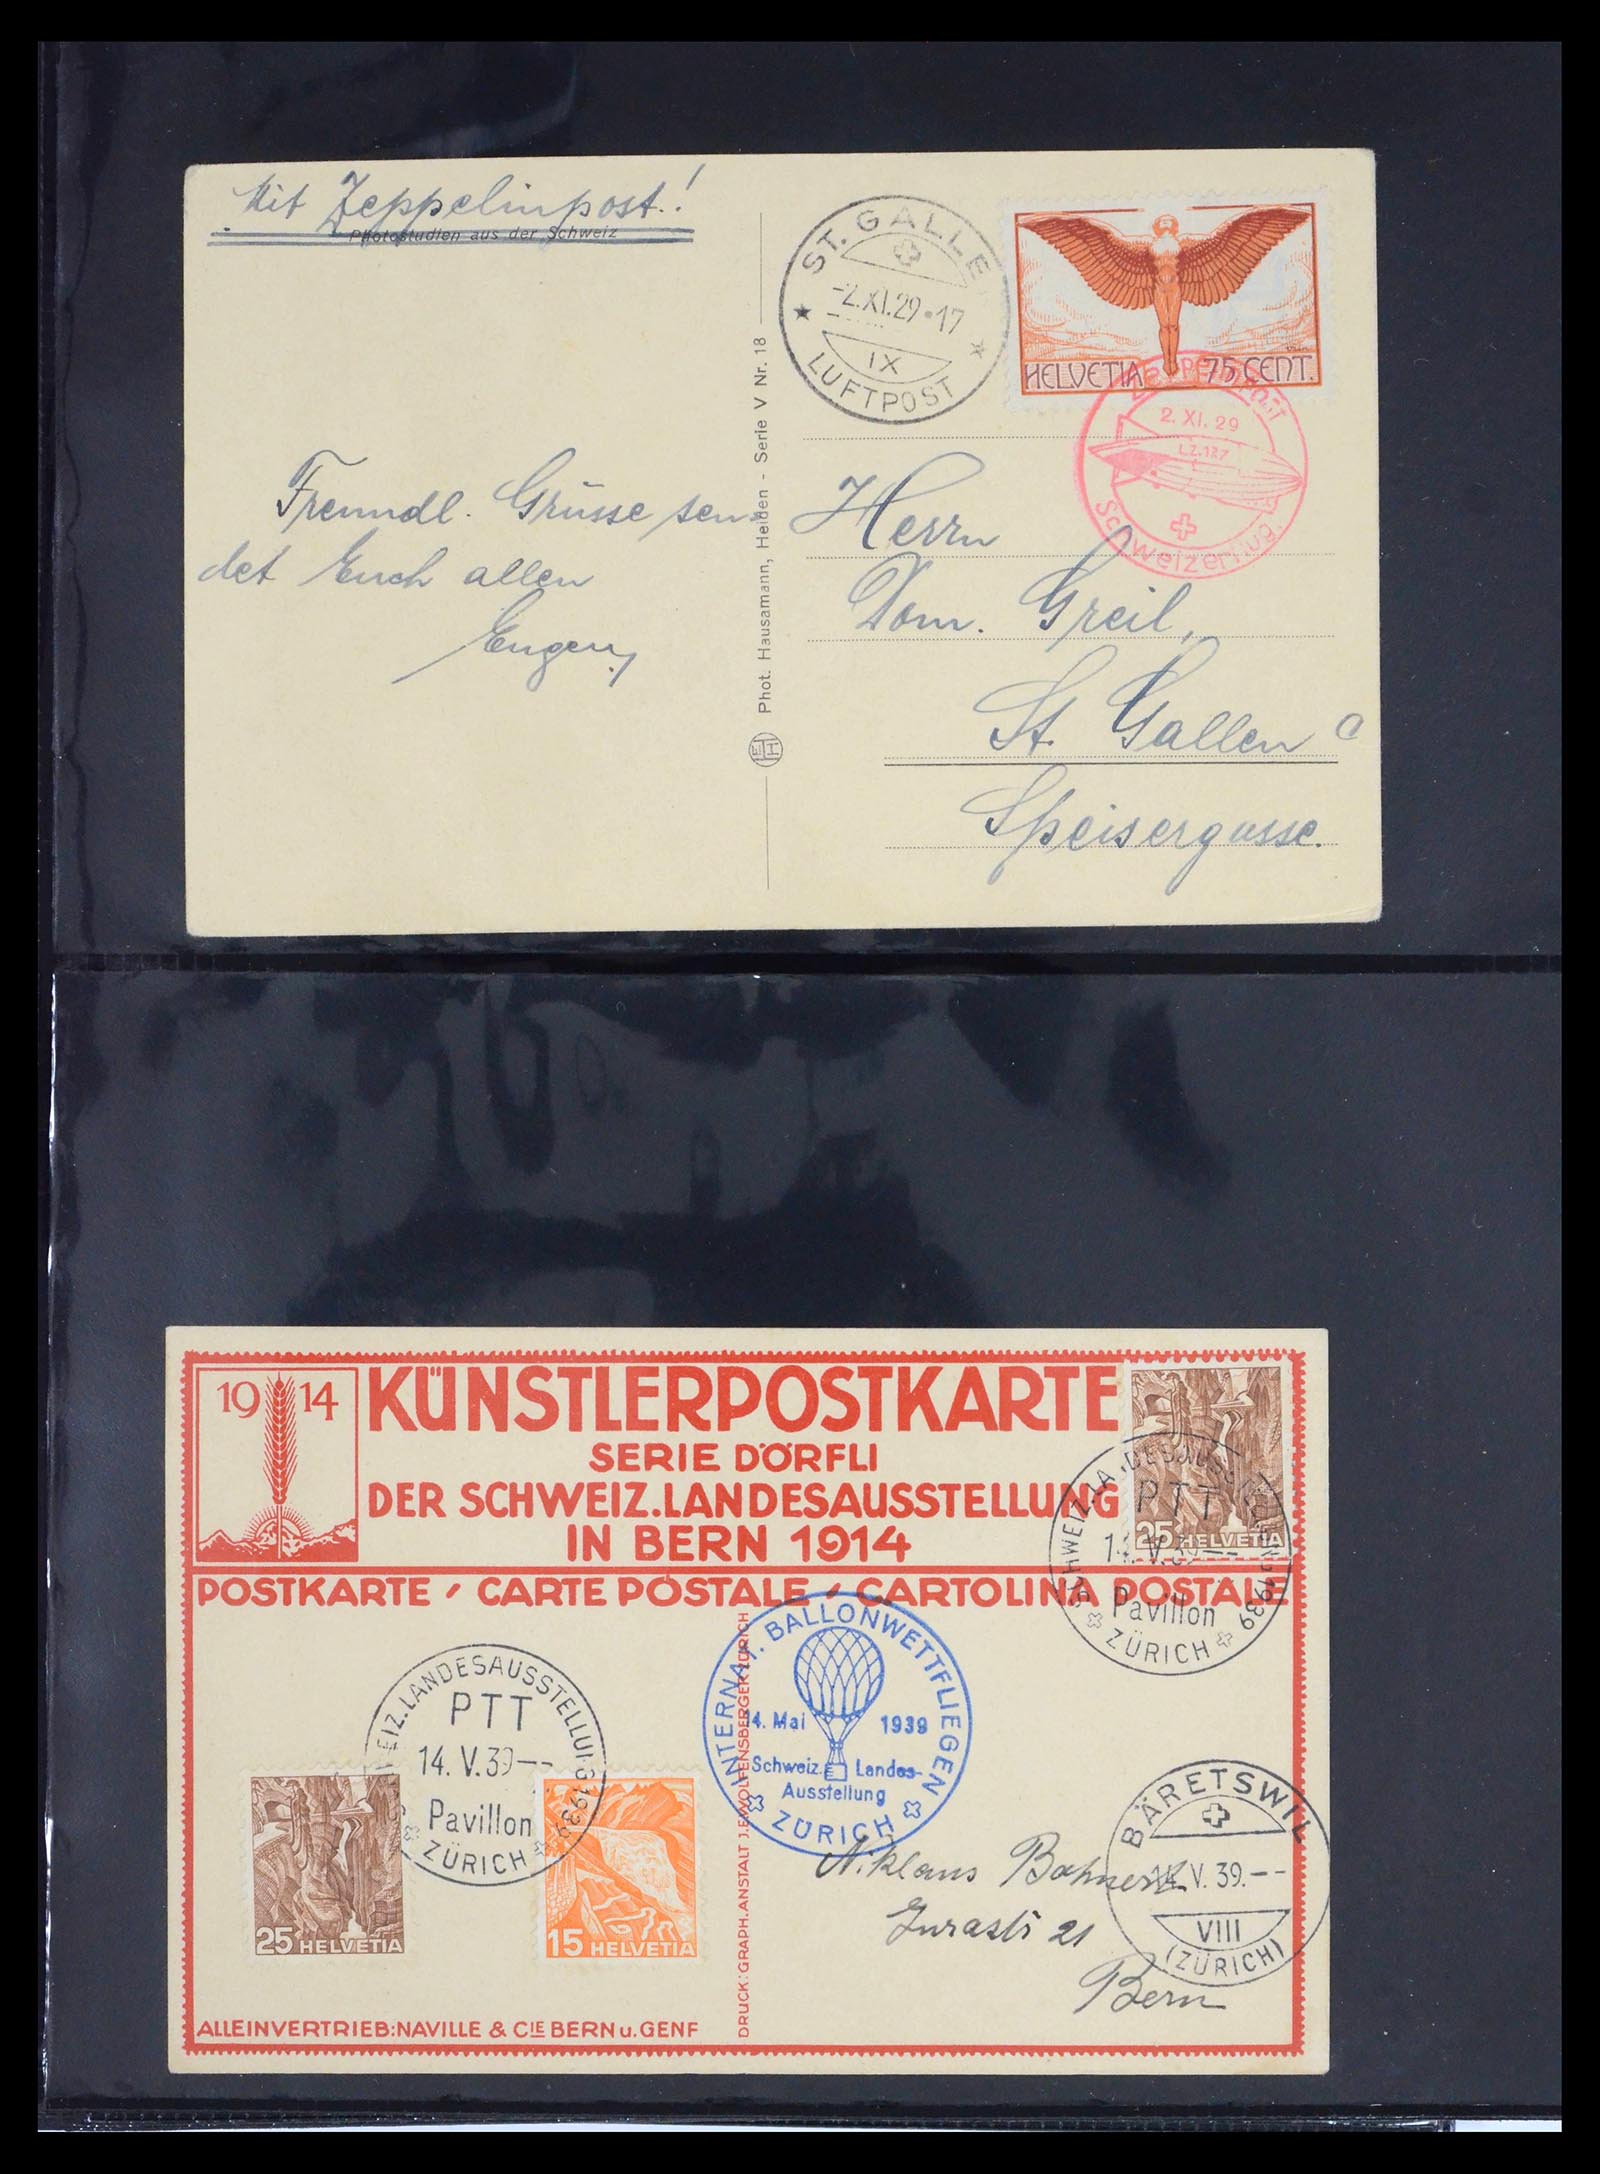 Mit Zeppelinpost!
Photostudien aus der Schweiz
ST. GALLE
-2.XI.29·17
IX
LUFTPOST
HELVETIA 75 CENT.
2. XI. 29
LZ.127
Schweizerflug.
Phot. Hausamann, Heiden - Serie V Nr. 18
EHT
Freundl. Grüsse sen-
det Euch allen
Eugen
Herrn
Dom. Greil,
St. Gallen C
Speisergasse.
1914
KÜNSTLERPOSTKARTE
SERIE DÖRFLI
DER SCHWEIZ. LANDESAUSSTELLUNG
IN BERN 1914
POSTKARTE / CARTE POSTALE / CARTOLINA POSTALE
25 HELVETIA
SCHWEIZ. LANDESAUSSTELLUNG 1939
PTT
14. V. 39--
Pavillon
ZÜRICH
EIZ. LANDESAUSSTELLUNG 1939
PTT
14. V. 39--
Pavillon
ZÜRICH
25 HELVETIA
15 HELVETIA
INTERNAT. BALLONWETTFLIEGEN
14. Mai 1939
Schweiz. Landes-
Ausstellung
ZÜRICH
DRUCK: GRAPH. ANSTALT J.E. WOLFENSBERGER ZÜRICH
BÄRETSWIL
14. V. 39.--
VIII
(ZÜRICH)
Niklaus
21
Bern
ALLEINVERTRIEB: NAVILLE & CIE BERN u. GENF